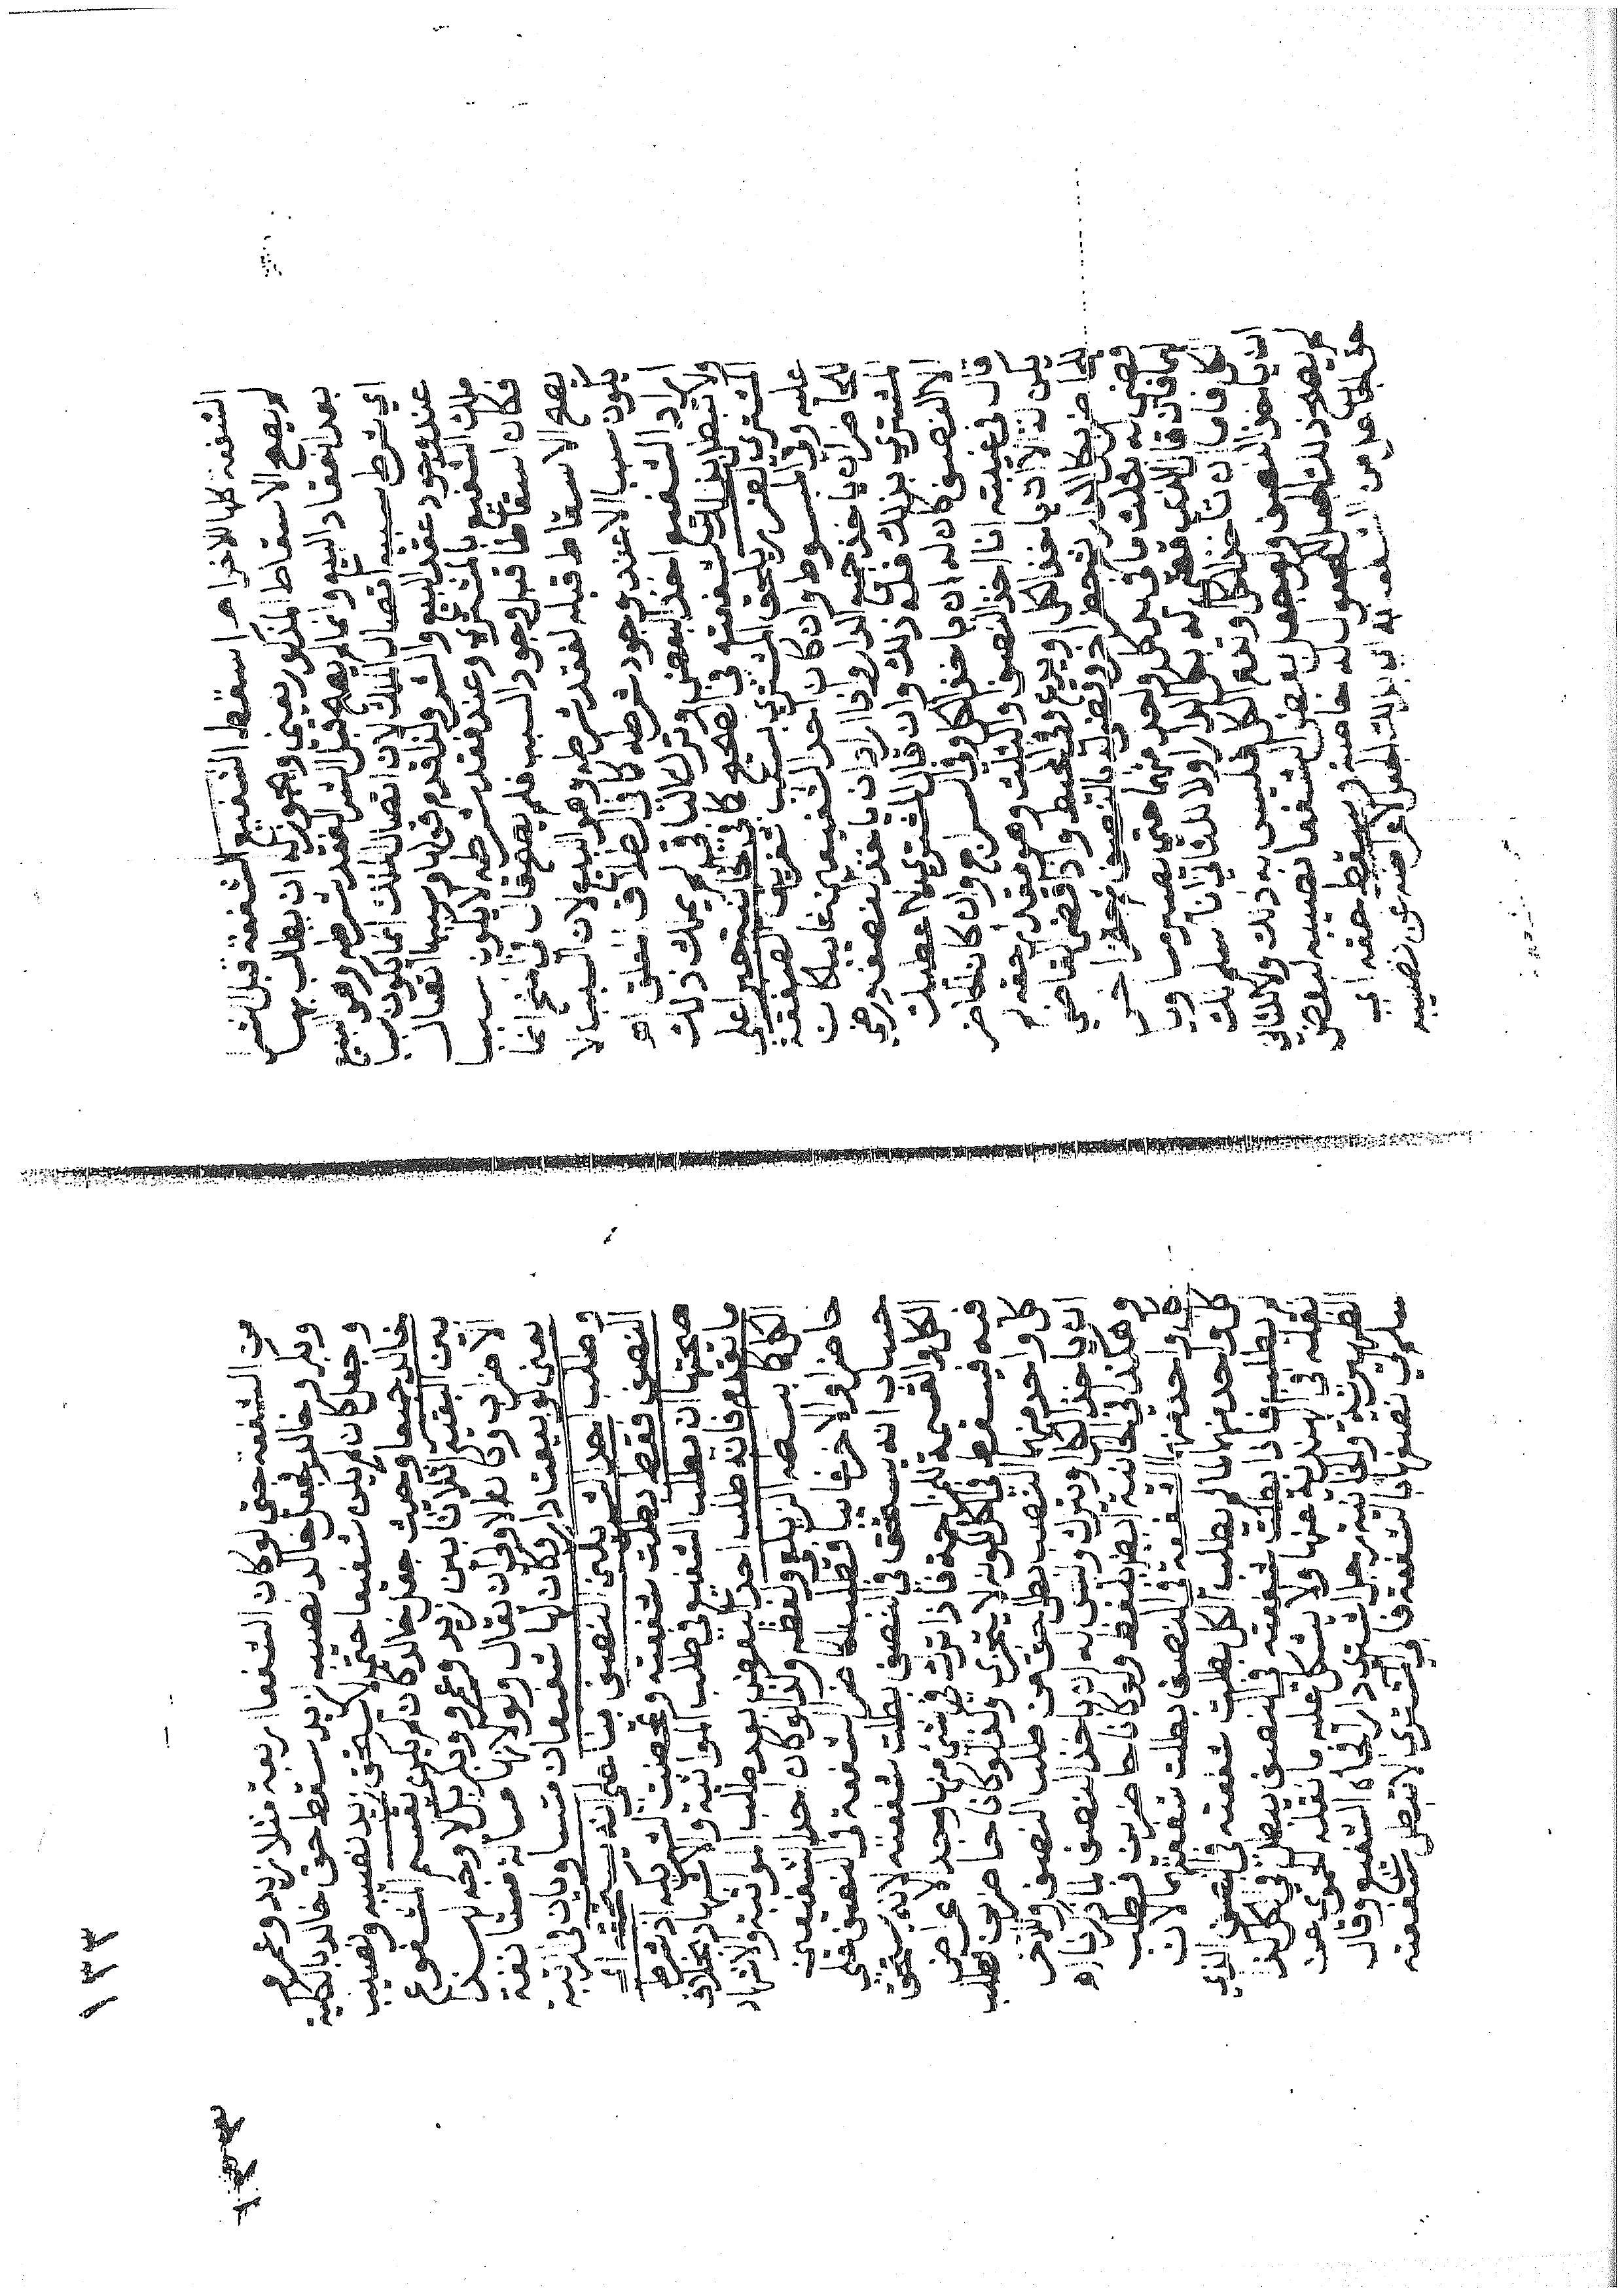 الشفعة كلها للاخر اه اسقط الشفيع الشفعة قبل الشرا
لم يصح الاسقاط المذكور يعني ويجوز له ان يطالب بها
بعد انعقاد البيع وانما لم يصح قبل الشرا لفقد شرطه وهو البيع
اي شرط سببه اتصال الملك لان اتصال الملك انما يكون سببا
عند وجود عقد البيع والشرا ولذا قدم قوله وسببها اتصال
ملك الشفيع بالمشتري وعند فقد شرطه لا يكون سببا
فكان اسقاطا قبل وجود السبب فلم يصح قال في المنح انما
يصح الاسقاط قبله لفقد شرطه وهو البيع لان السبب لا
يكون سببا الا عند وجود شرطه كما في الطلاق المعلق اه
اراد الشفيع اخذ البعض وترك الباقي لم يملك ذلك
ولا تبطل بذلك شفعته في الصحيح كما في الخانية جبرا على
المشتري لضرر يلحق المشتري بسبب تفريق الصفقة
عليه وفي المبسوط وان كان احد الشفيعين غايبا كان
للحاضر ان ياخذ جميع الدار واذا اراد ان ياخذ النصف ورضي
المشتري بذلك فله ذلك وان قال المشتري لا اعطيك
الا النصف كان له ان ياخذ الكل وفي السراج وان كان الحاضر
قال في غيبته انا اخذ النصف او الثلث وهو مقدار حقه لم
يكن له الا ان ياخذ الكل او يدع وفي المحيط واذا قضى القاضي
للحاضر بكل الدار ثم حضر اخر وقضى له بالنصف ثم حضر اخر
قضى له بثلث ما في يد كل واحد منهما حتى يصير مساويا
لهما فان قال الذي قضي له بكل الدار اولا للثاني انا اسلم لك
الكل فاما ان تاخذ الكل او تدع الكل فليس له ذلك وللثاني
ان ياخذ النصف ولو جعل بعض الشفعا نصيبه لبعض
لم يصح ذلك الجعل للمجعول له خاصة ويسقط حقه اي
حق الجاعل من الشفعة به اي بذلك الجعل لاعراضه عن نصيبه
١٣٣
من الشفعة حتى لو كان الشفعا اربعة مثلا زيد وعمرو
وبكر وخالد فجعل خالد نصيبه لزيد سقط حق خالد بالكلية
وجعل كان لم يكن شفيعا حتى لا يستحق زيد نصيبه ونصيب
خالد جميعا وحيث جعل خالد كان لم يكن يقسم المشفوع
بين البقية اثلاثا بين زيد وعمرو وبكر بلا وجه لهذا
الاضراب وكان الاولى ان يقال ولو لانها مسالة مستانفة
يعني لو بيعت دار وكان لها شفيعان متساويان في الرتبة
وطلب احد الشريكين النصف بنا على انه يستحقه اي
النصف فقط بطلت شفعته وتمحضت لشريكه اذ شرط
صحتها ان يطلب الشفيع في طلب المواثبة والاشهاد بخلاف
ما تقدم فانه طلب اخذ البعض بعد طلب المواثبة والاشهاد
الكل كما بسطه الزيلعي ولفظه ولذا لو كان احد الشفيعين
حاضرا والاخر غايبا وطلب الحاضر الشفعة في النصف على
حساب انه يستحق النصف بطلت شفعته لانه يستحق
الكل والقسمة للمزاحمة فاذا ترك في شي منها وجد الاعراض
فيه فيسقط في الكل لكونه لا يتجزى وكذا لو كانا حاضرين فطلب
كل واحد منهما النصف بطل حق من طلب النصف وللاخر
ان ياخذ الكل او يترك وليس له ان ياخذ النصف لما ذكرنا اه
وهكذا في الخانية ايضا بلفظ ولو كانا حاضرين فطلب
كل واحد منهما الشفعة في النصف بطلت شفعتهما لان
كل واحد منهما لما لم يطلب الكل بطلت شفعته في النصف الذي
لم يطلب فاذا بطلت شفعته في النصف يبطل في الكل كذا
نقله في الهندية عنها ولا يشكل عليه ما نقله الحموي عن
الظهيرية والخانية رجل اشترى دارا فجاء الشفيع وقال
سلم لي نصفها بالشفعة فابى المشتري لا تبطل شفعته